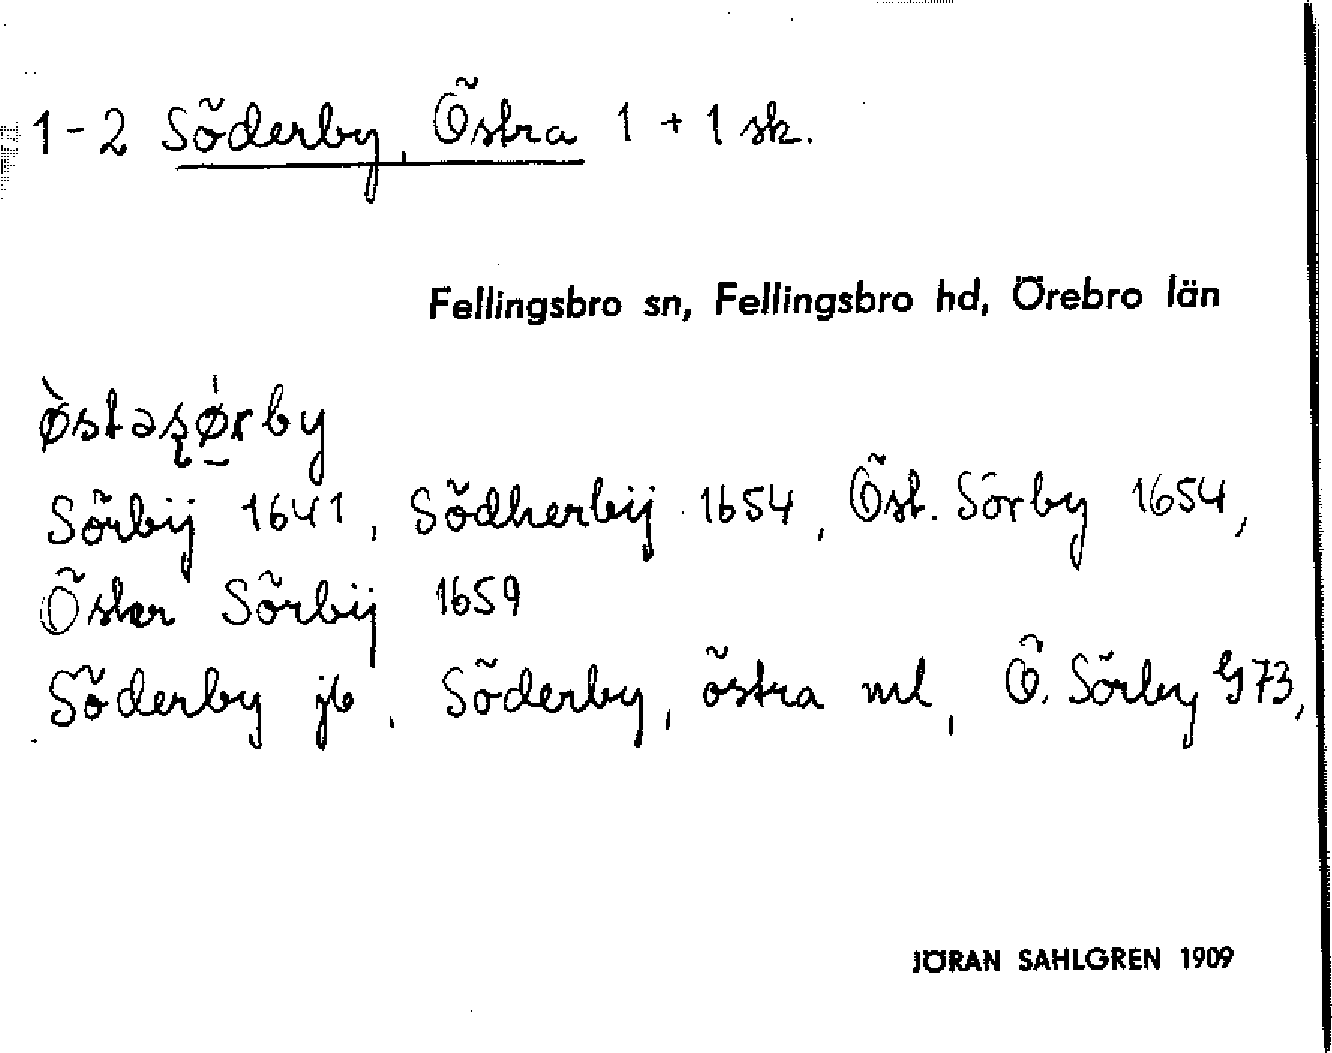 1-2 Söderby, Östra 1 + 1 sk.
Fellingsbro sn, Fellingsbro hd, Örebro län
Sörbij 1641, Södherbij 1654, Öst. Sörby 1654,
Öster Sörbij 1659
Söderby jb, Söderby, östra ml, Ö. Sörby G73,
JÖRAN SAHLGREN 1909